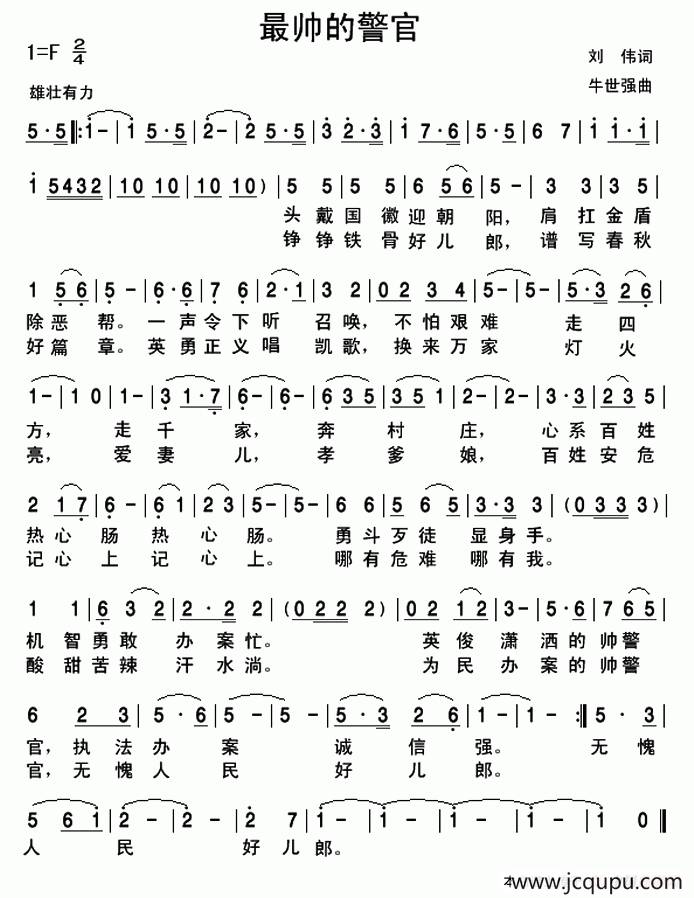 最帅的警官
1=F 2/4
刘 伟词
雄壮有力
牛世强曲
5·5 |: 1- | 1 5·5 | 2- | 2 5·5 | 3 2·3 | 1 7·6 | 5·5 | 6 7 | 1 1·1 |
1 5432 | 10 10 | 10 10 ) | 5 5 | 5 5 | 6 56 | 5- | 3 3 | 3 5 |
头 戴 国 徽 迎 朝 阳， 肩 扛 金 盾
铮 铮 铁 骨 好 儿 郎， 谱 写 春 秋
1 56 | 5- | 6·6 | 7 6 | 2·1 | 3 2 | 02 34 | 5- | 5- | 5·3 26 |
除 恶 帮。 一 声 令 下 听 召 唤， 不 怕 艰 难 走 四
好 篇 章。 英 勇 正 义 唱 凯 歌， 换 来 万 家 灯 火
1- | 1 0 | 1- | 3 1·7 | 6- | 6- | 6 35 | 35 1 | 2- | 2- | 3·3 | 235 |
方， 走 千 家， 奔 村 庄， 心 系 百 姓
亮， 爱 妻 儿， 孝 爹 娘， 百 姓 安 危
2 17 | 6- | 61 | 23 | 5- | 5- | 66 | 5 65 | 3·3 3 | (03 33) |
热 心 肠 热 心 肠。 勇 斗 歹 徒 显 身 手。
记 心 上 记 心 上。 哪 有 危 难 哪 有 我。
1 1 | 6 3 2 | 2·2 2 | (02 2 2) | 02 12 | 3- | 5·6 | 7 65 |
机 智 勇 敢 办 案 忙。 英 俊 潇 洒 的 帅 警
酸 甜 苦 辣 汗 水 淌。 为 民 办 案 的 帅 警
6 2 3 | 5·5 6 | 5- | 5- | 5·3 | 2 6 | 1- | 1- :| 5·3 |
官， 执 法 办 案 诚 信 强。 无 愧
官， 无 愧 人 民 好 儿 郎。
5 61 | 2- | 2- | 2 7 | 1- | 1- | 1- | 1 0 ||
人 民 好 儿 郎。
www.jcqupu.com